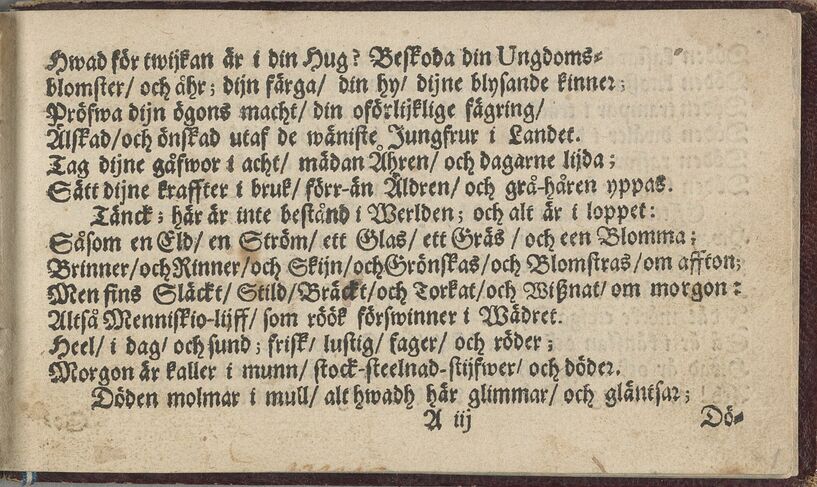 Hwad för twijkan är i din Hug? Beskoda din Ungdoms-
blomster/ och åhr; dijn färga/ din hy/ dijne blysande kinner;
Pröfwa dijn ögons macht/ din oförlijklige fägring/
Älskad/och önskad utaf de wäniste Jungfrur i Landet.
Tag dijne gåfwor i acht/ mädan Åhren/ och dagarne lijda;
Sätt dijne kraffter i bruk/ förr-än Äldren/ och grå-håren yppas.
Tänck; här är inte bestånd i Werlden; och alt är i loppet:
Såsom en Eld/ en Ström/ ett Glas/ ett Gräs / och een Blomma;
Brinner/och Rinner/och Skijn/och Grönskas/och Blomstras/om affton;
Men fins Släckt/ Stild/Bräckt/och Torkat/och Wißnat/ om morgon:
Altså Menniskio-lijff/ som röök förswinner i Wädret.
Heel/ i dag/ och sund; frisk/ lustig/ fager/ och röder;
Morgon är kaller i munn/ stock-steelnad-stijfwer/ och döder.
Döden molmar i mull/ alt hwadh här glimmar/ och gläntsar;
A iij
Dö-